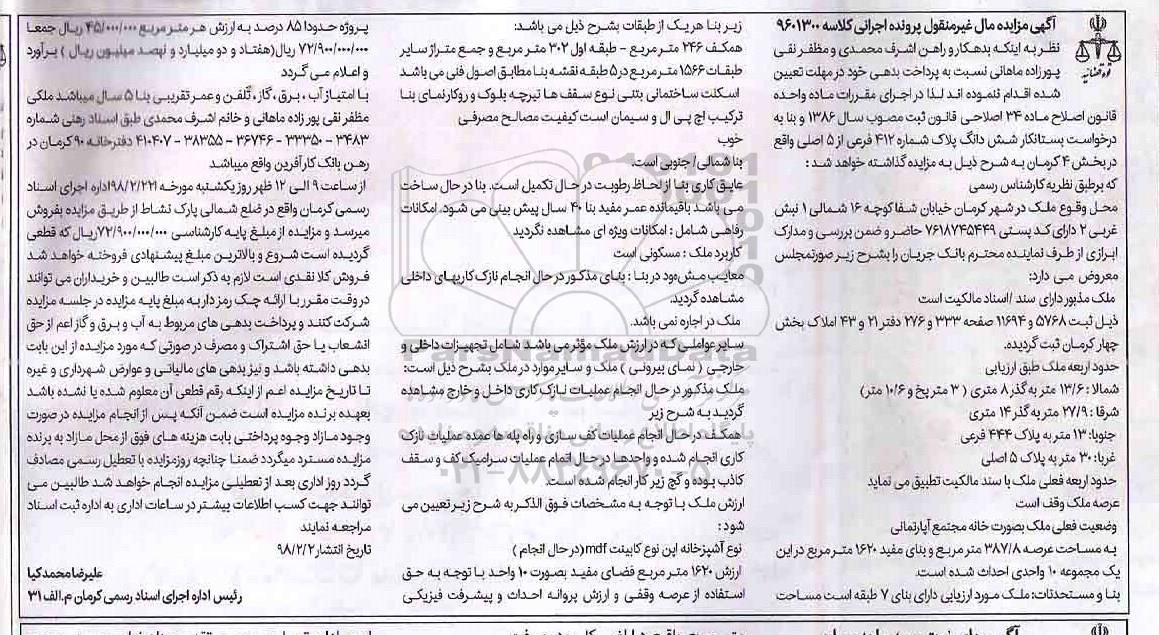 آگهی مزایده مال غیرمنقول پرونده اجرائی کلاسه ۹۶۰۱۳۰۰
نظر به اینکه بدهکار و راهن اشرف محمدی و مظفر نقی
پورزاده ماهانی نسبت به پرداخت بدهی خود در مهلت تعیین
شده اقدام ننموده اند لذا در اجرای مقررات ماده واحده
قانون اصلاح ماده ۳۴ اصلاحی قانون ثبت مصوب سال ۱۳۸۶ و بنا به
درخواست بستانکار شش دانگ پلاک شماره ۴۱۲ فرعی از ۵ اصلی واقع
در بخش ۴ کرمان به شرح ذیل به مزایده گذاشته خواهد شد :
که برطبق نظریه کارشناس رسمی
محل وقوع ملک در شهر کرمان خیابان شفا کوچه ۱۶ شمالی ۱ نبش
غربی ۲ دارای کد پستی ۷۶۱۸۷۴۵۴۴۹ حاضر و ضمن بررسی و مدارک
ابرازی از طرف نماینده محترم بانک جریان را بشرح زیر صورتمجلس
معروض می دارد:
ملک مذبور دارای سند /اسناد مالکیت است
ذیل ثبت ۵۷۶۸ و ۱۱۶۹۴ صفحه ۳۳۳ و ۲۷۶ دفتر ۲۱ و ۴۳ املاک بخش
چهار کرمان ثبت گردیده.
حدود اربعه ملک طبق ارزیابی
شمالا : ۱۳/۶ متر به گذر ۸ متری ( ۳ متر پخ و ۱۰/۶ متر)
شرقا : ۲۷/۹ متر به گذر ۱۴ متری
جنوبا: ۱۳ متر به پلاک ۴۴۴ فرعی
غربا: ۳۰ متر به پلاک ۵ اصلی
حدود اربعه فعلی ملک با سند مالکیت تطبیق می نماید
عرصه ملک وقف است
وضعیت فعلی ملک بصورت خانه مجتمع آپارتمانی
به مساحت عرصه ۳۸۷/۸ متر مربع و بنای مفید ۱۶۲۰ متر مربع در این
یک مجموعه ۱۰ واحدی احداث شده است.
بنا و مستحدثات: ملک مورد ارزیابی دارای بنای ۷ طبقه است مساحت
زیر بنا هر یک از طبقات بشرح ذیل می باشد:
همکف ۲۴۶ متر مربع - طبقه اول ۳۰۲ متر مربع و جمع متراژ سایر
طبقات ۱۵۶۶ متر مربع در ۵ طبقه نقشه بنا مطابق اصول فنی می باشد
اسکلت ساختمانی بتنی نوع سقف ها تیرچه بلوک و روکار نمای بنا
ترکیب اچ پی ال و سیمان است کیفیت مصالح مصرفی
خوب
بنا شمالی/ جنوبی است.
عایق کاری بنا از لحاظ رطوبت در حال تکمیل است. بنا در حال ساخت
می باشد باقیمانده عمر مفید بنا ۴۰ سال پیش بینی می شود. امکانات
رفاهی شامل : امکانات ویژه ای مشاهده نگردید
کاربرد ملک : مسکونی است
معایب مشهود در بنا : بنای مذکور در حال انجام نازک کاریهای داخلی
مشاهده گردید.
ملک در اجاره نمی باشد.
سایر عواملی که در ارزش ملک مؤثر می باشد شامل تجهیزات داخلی و
خارجی ( نمای بیرونی ) ملک و سایر موارد در ملک بشرح ذیل است:
ملک مذکور در حال انجام عملیات نازک کاری داخل و خارج مشاهده
گردید به شرح زیر
همکف در حال انجام عملیات کف سازی و راه پله ها عمده عملیات نازک
کاری انجام شده و واحدها در حال اتمام عملیات سرامیک کف و سقف
کاذب بوده و گچ زیر کار انجام شده است.
ارزش ملک با توجه به مشخصات فوق الذکر به شرح زیر تعیین می
شود :
نوع آشپزخانه اپن نوع کابینت mdf(در حال انجام )
ارزش ۱۶۲۰ متر مربع فضای مفید بصورت ۱۰ واحد با توجه به حق
استفاده از عرصه وقفی و ارزش پروانه احداث و پیشرفت فیزیکی
پروژه حدودا ۸۵ درصد به ارزش هر متر مربع ۴۵/۰۰۰/۰۰۰ ریال جمعا
۷۲/۹۰۰/۰۰۰/۰۰۰ ریال(هفتاد و دو میلیارد و نهصد میلیون ریال ) برآورد
و اعلام می گردد
با امتیاز آب ، برق ، گاز ، تلفن و عمر تقریبی بنا ۵ سال میباشد ملکی
مظفر نقی پور زاده ماهانی و خانم اشرف محمدی طبق اسناد رهنی شماره
۳۴۸۳ - ۳۳۳۵۰ - ۳۶۷۴۶ - ۳۸۳۵۵ - ۴۱۰۴۰۷ دفترخانه ۹۰ کرمان در
رهن بانک کارآفرین واقع میباشد
از ساعت ۹ الی ۱۲ ظهر روز یکشنبه مورخه ۹۸/۲/۲۲اداره اجرای اسناد
رسمی کرمان واقع در ضلع شمالی پارک نشاط از طریق مزایده بفروش
میرسد و مزایده از مبلغ پایه کارشناسی ۷۲/۹۰۰/۰۰۰/۰۰۰ریال که قطعی
گردیده است شروع و بالاترین مبلغ پیشنهادی فروخته خواهد شد
فروش کلا نقدی است لازم به ذکر است طالبین و خریداران می توانند
در وقت مقرر با ارائه چک رمز دار به مبلغ پایه مزایده در جلسه مزایده
شرکت کنند و پرداخت بدهی های مربوط به آب و برق و گاز اعم از حق
انشعاب یا حق اشتراک و مصرف در صورتی که مورد مزایده از این بابت
بدهی داشته باشد و نیز بدهی های مالیاتی و عوارض شهرداری و غیره
تا تاریخ مزایده اعم از اینکه رقم قطعی آن معلوم شده یا نشده باشد
بعهده برنده مزایده است ضمن آنکه پس از انجام مزایده در صورت
وجود مازاد وجوه پرداختی بابت هزینه های فوق از محل مازاد به برنده
مزایده مسترد میگردد ضمنا چنانچه روز مزایده با تعطیل رسمی مصادف
گردد روز اداری بعد از تعطیلی مزایده انجام خواهد شد طالبین می
توانند جهت کسب اطلاعات بیشتر در ساعات اداری به اداره ثبت اسناد
مراجعه نمایند
تاریخ انتشار ۹۸/۲/۲
علیرضا محمدکیا
رئیس اداره اجرای اسناد رسمی کرمان م.الف ۳۱
ParsNamadData
۰۲۱-۸۸۳۴۹۶۷۰-۵